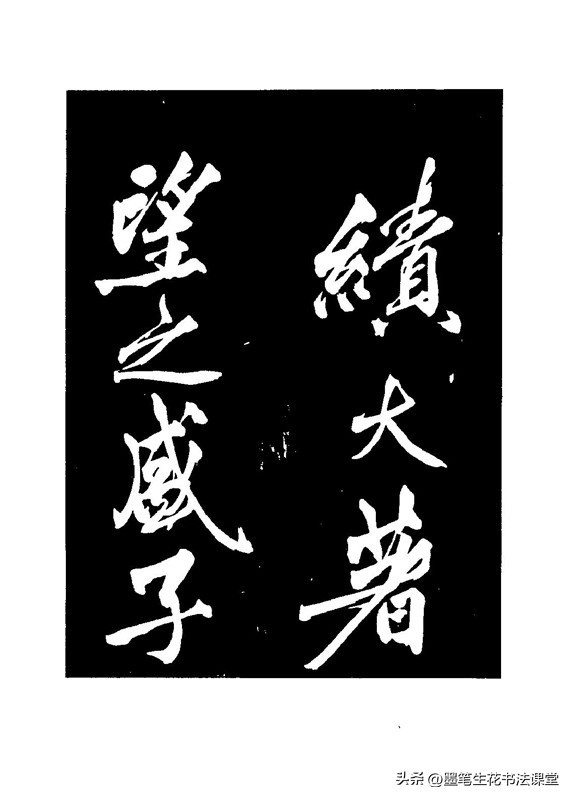 績大著
望之盛子
头条 @墨笔生花书法课堂